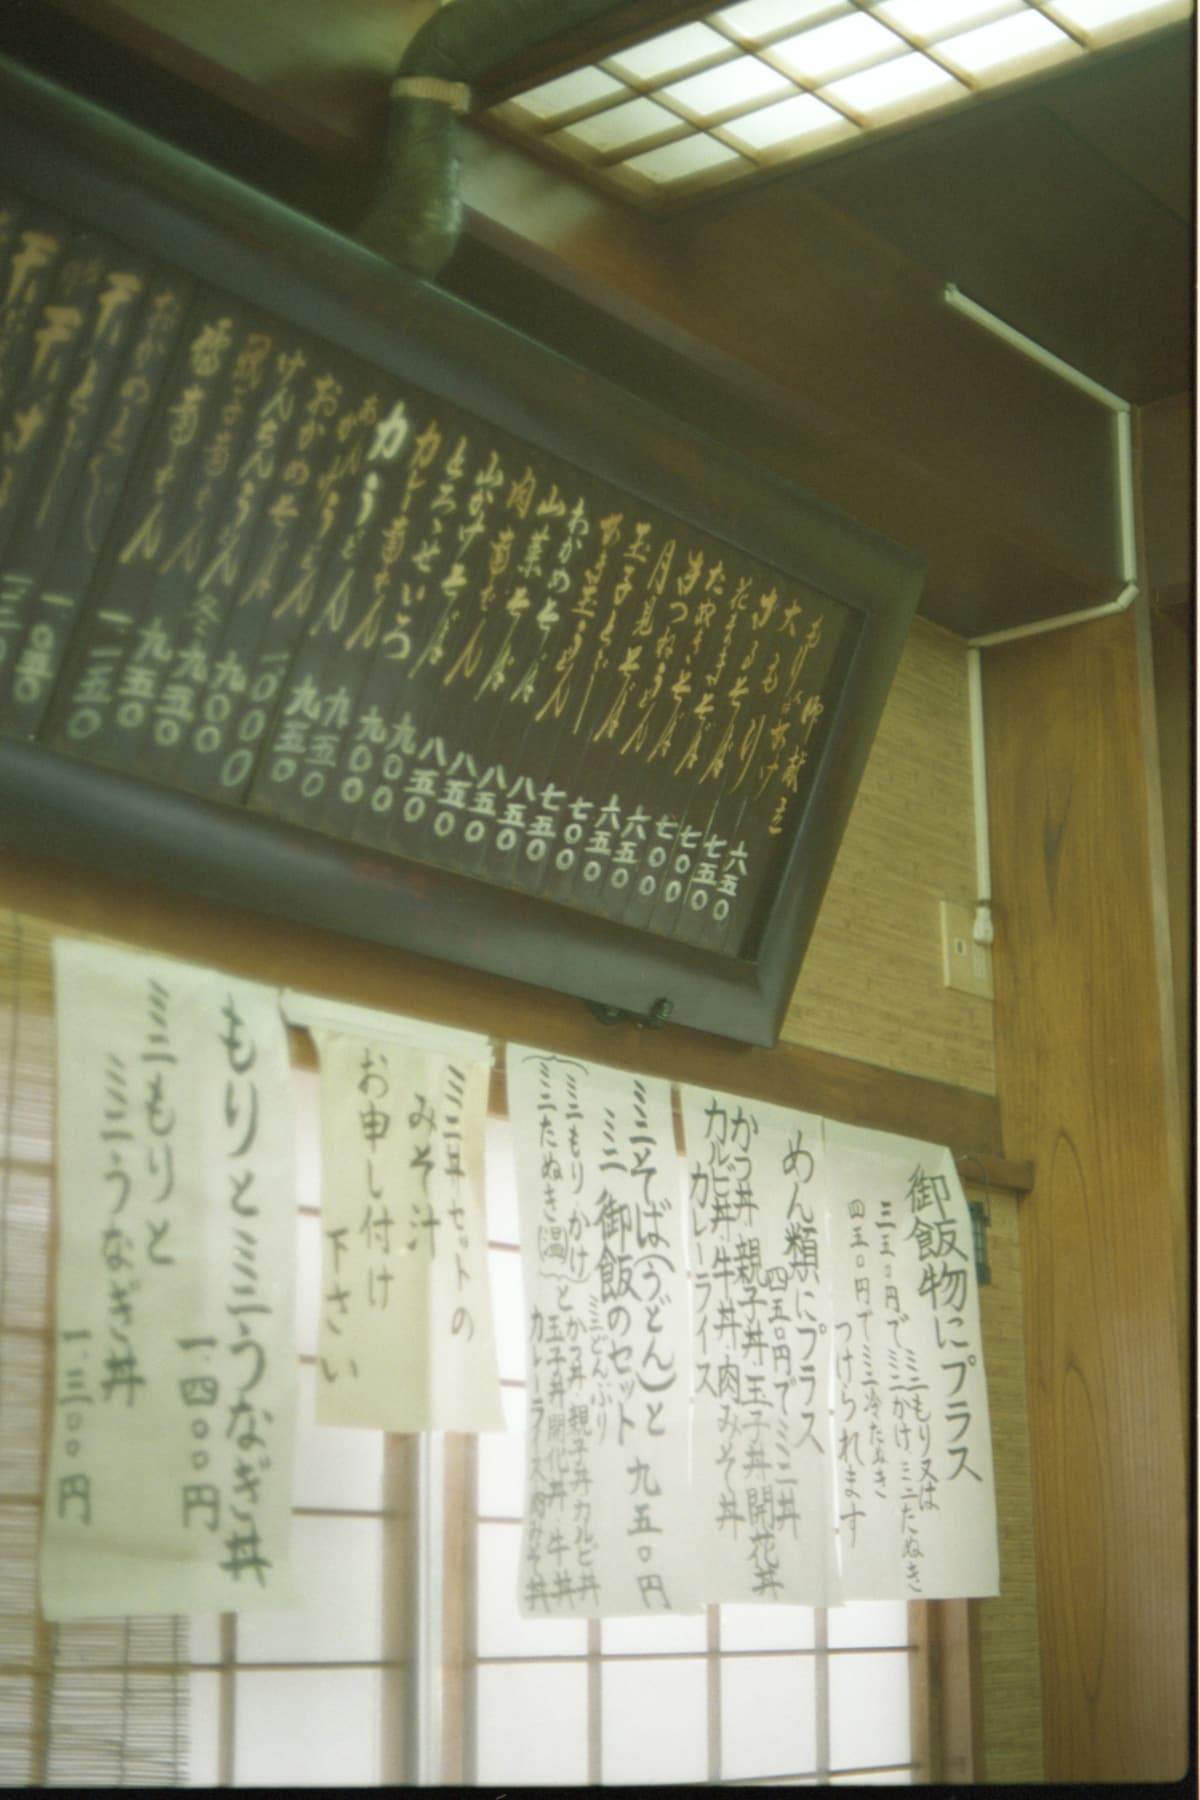 御献立
もり・かけ
大もり
冷したぬきそば
花まきそば
たぬきそば
きつねうどん
月見そば
玉子とじ
わかめそば
山菜そば
肉南ばん
山かけそば
とろろせいろ
カレー南ばん
力うどん
あんかけうどん
おかめそば
けんちんうどん 冬
鴨南ばん
おかめとじ
天とじ
六五〇
七五〇
七〇〇
七〇〇
六五〇
六五〇
七〇〇
七五〇
八五〇
八五〇
八五〇
八五〇
九〇〇
九〇〇
九五〇
九五〇
一〇〇〇
九〇〇
九五〇
九五〇
一一五〇
一〇五〇
御飯物にプラス
三五〇円でミニもり又は
ミニかけ ミニたぬき
四五〇円でミニ冷たぬき
つけられます
めん類にプラス
四五〇円でミニ丼
かつ丼 親子丼 玉子丼 開花丼
カルビ丼・牛丼・肉みそ丼
カレーライス
ミニそば(うどん)と
ミニ御飯のセット 九五〇円
ミニもり かけ
ミニたぬき(温)と
ミニどんぶり
かつ丼・親子丼 カルビ丼
玉子丼 開花丼・牛丼
カレーライス 肉みそ丼
ミニ丼セットの
みそ汁
お申し付け
下さい
もりとミニうなぎ丼
一.四〇〇円
ミニもりと
ミニうなぎ丼
一.三〇〇円